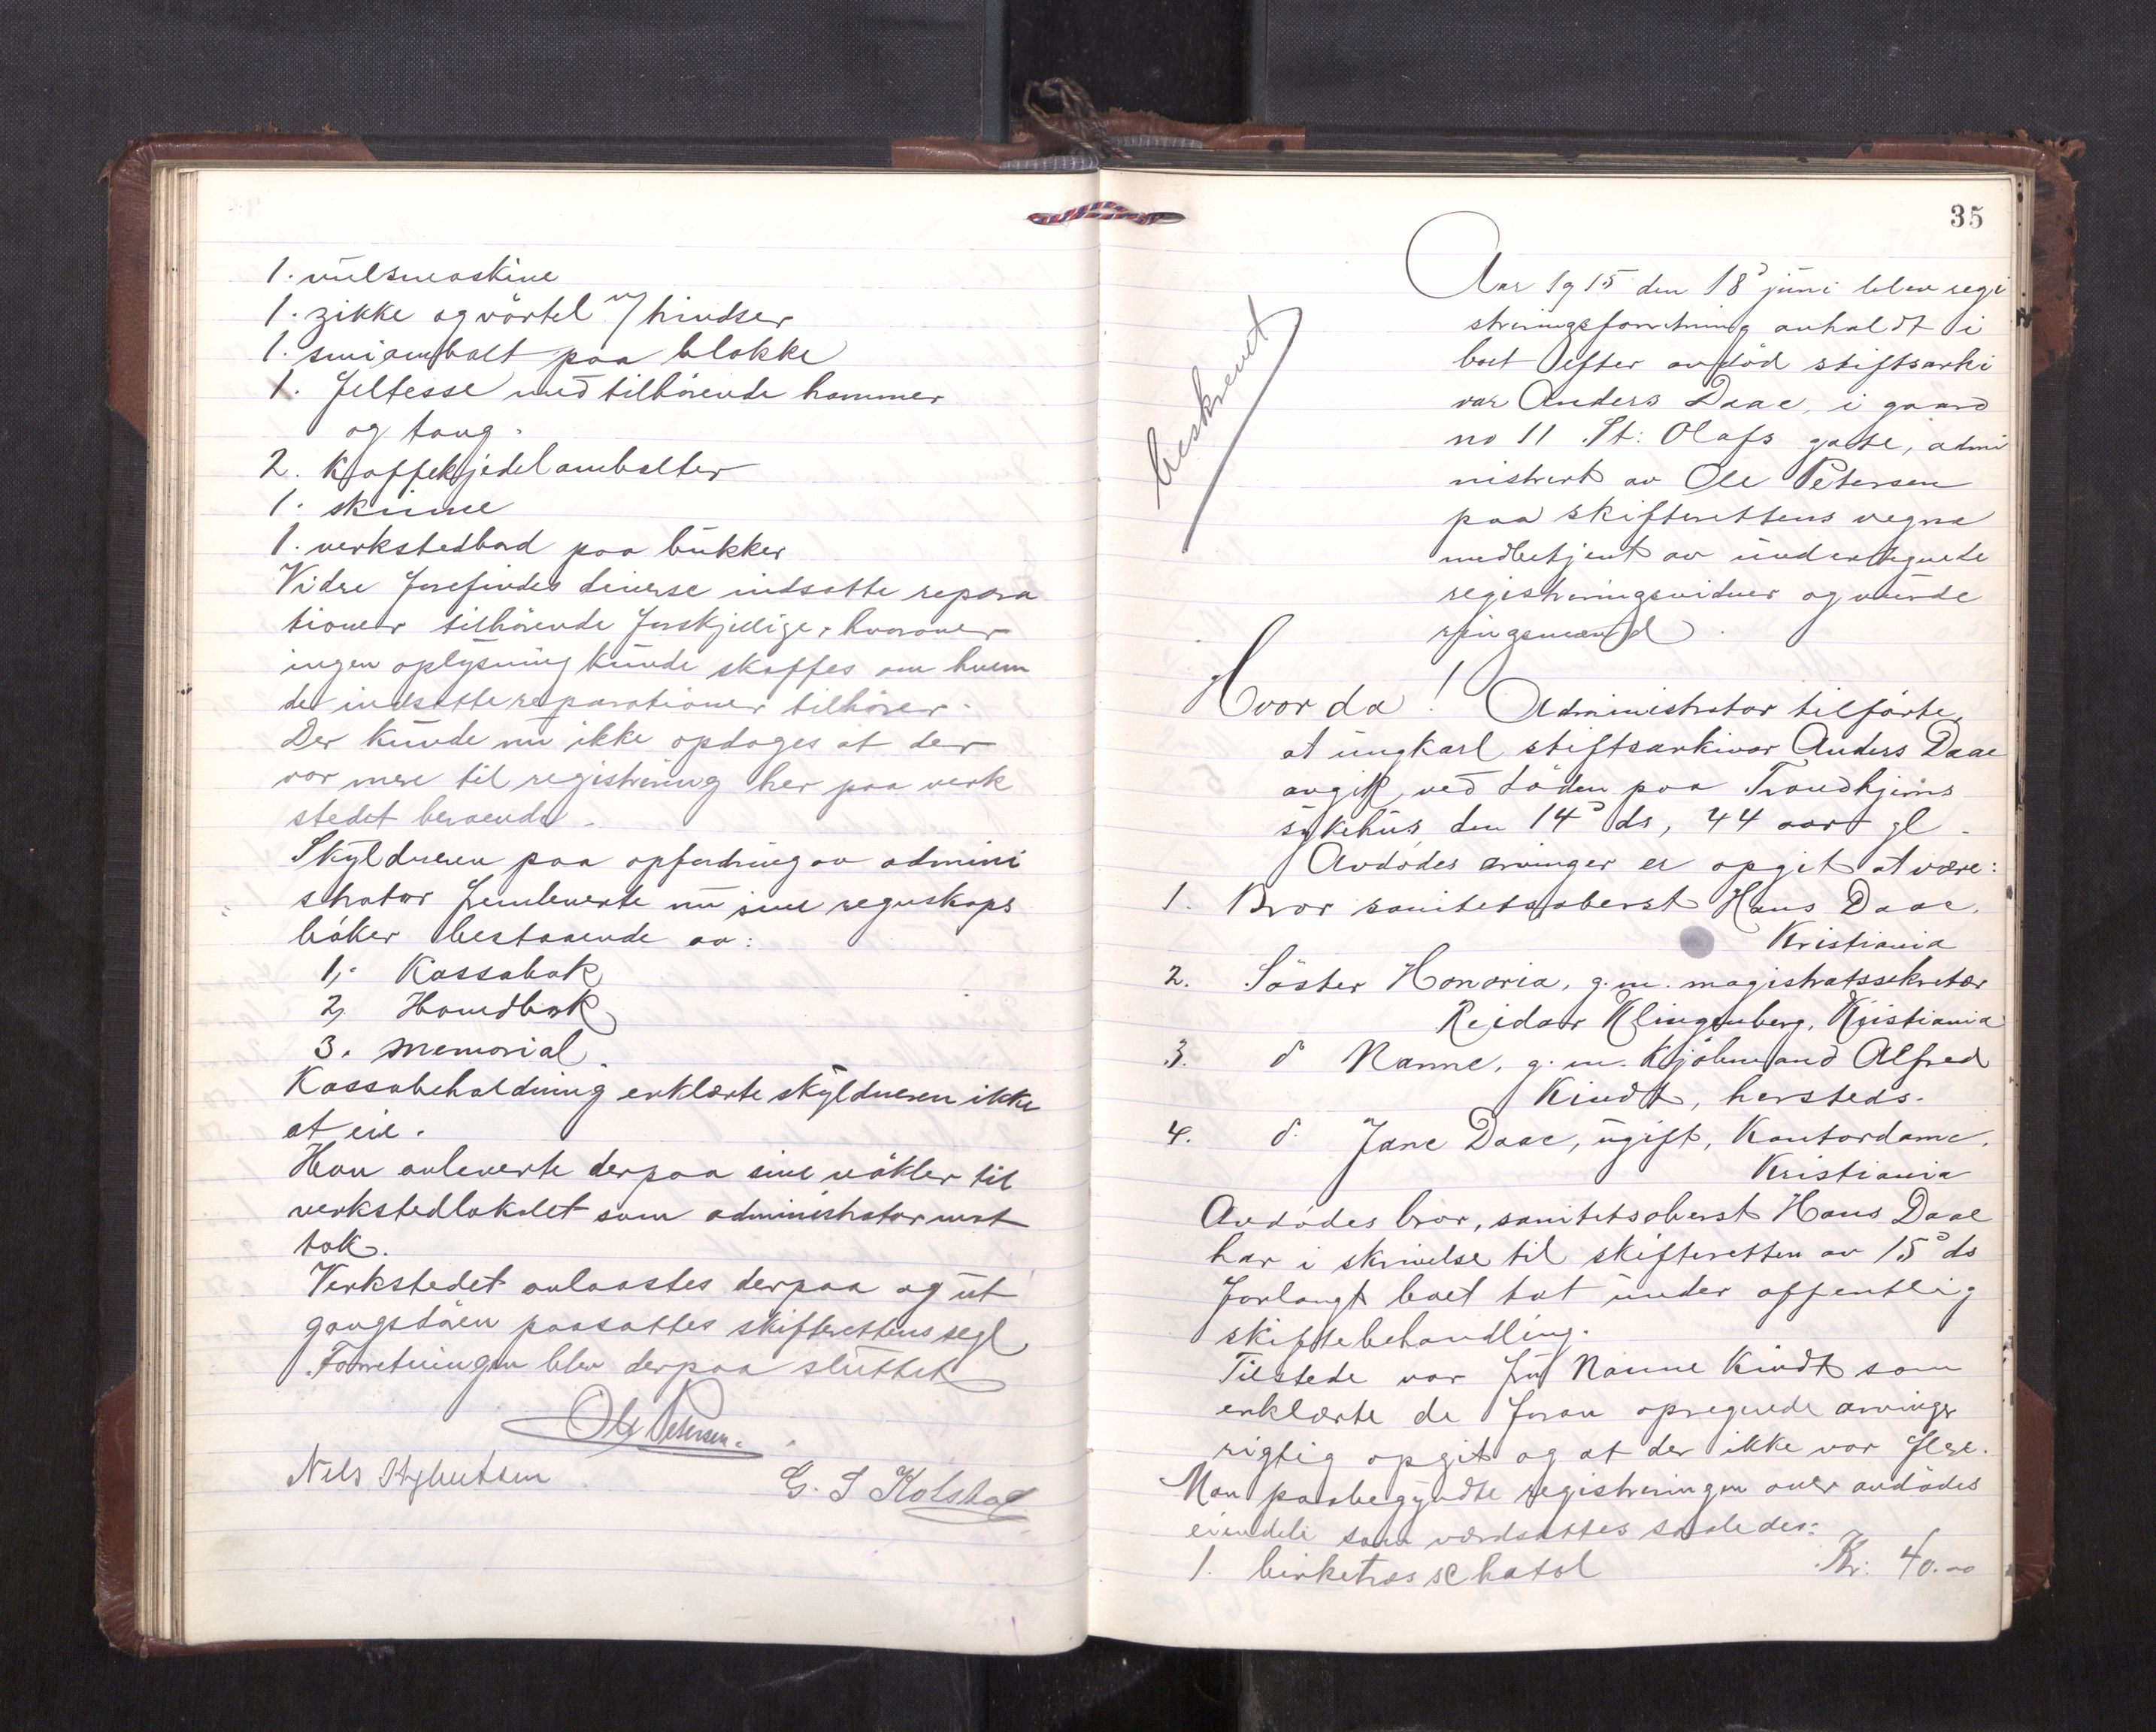 1. vulsmaskine
1. zikke og vörtel m/ hindser
1. smiambolt paa blokke
1. feltesse med tilhörende hammer
og tang.
2. Kaffekjedelambolter
1. skinne
1. verkstedbord paa bukker
Vidre forefindes diverse indsatte repara
tioner tilhörende forskjellige, hvorover
ingen oplysning kunde skaffes om hvem
de indsatte reparationer tilhörer.
Der kunde nu ikke opdages at der
var mere til registrering her paa verk
stedet beroende.
Skyldneren paa opfordring av admini
strator fremleverte nu sine regnskaps
böker bestaaende av:
1, Kassabok
2, Hovedbok
3. Memorial.
Kassabeholdning erklærte skyldneren ikke
at eie.
Han avleverte derpaa sine nökler til
verkstedlokalet som administrator mot
tok.
Verkstedet avlaastes derpaa og ut
gangsdören paasattes skifterettens segl
Forretningen blev derpaa sluttet
Ole Petersen.
Nils
G. S Kolstad
35
Aar 1915 den 18d juni blev regi
streringsforretning avholdt i
boet efter avdöd stiftsarki
var Anders Daae, i gaard
no 11 St: Olafs gate, admi
nistrert av Ole Petersen
paa skifterettens vegne
medbetjent av undertegnede
registreringsvidner og vurde
ringsmænd.
beskrevet
Hvorda! Administrator tilförte,
at ungkarl stiftsarkivar Anders Daae
avgik ved döden paa Trondhjems
sykehus den 14d ds, 44 aar gl.
Avdödes arvinger er opgit at være:
1. Bror sanitetsoberst Hans Daae,
Kristiania
2. Söster Honoria, g. m. magistratssekretær
Reidar Klingenberg, Kristiania
3. do Nanne, g. m. Kjöbmand Alfred
Kindt, hersteds.
4. do. Jane Daae, ugift, Kontordame,
Kristiania
Avdödes bror, sanitetsoberst Hans Daae
har i skrivelse til skifteretten av 15d ds
forlangt boet tat under offentlig
skiftebehandling.
Tilstede var fru Nanne Kindt som
erklærte de foran opregnede arvinger
rigtig opgit og at der ikke var flere.
Man paabegyndte registreringen over avdödes
eiendele som værdsattes saaledes:
1. birketræs schatol Kr: 40.00